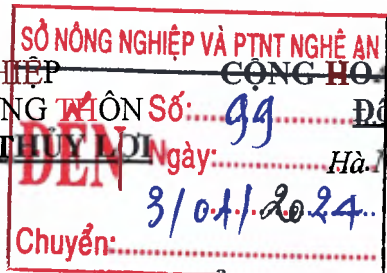 SỞ NÔNG NGHIỆP VÀ PTNT NGHỆ AN
HIỆP CỘNG HO
NG THÔN Số: 99 Đ
THỦY LỢI
ĐẾN Ngày: Hà
3/01/2024
Chuyển: